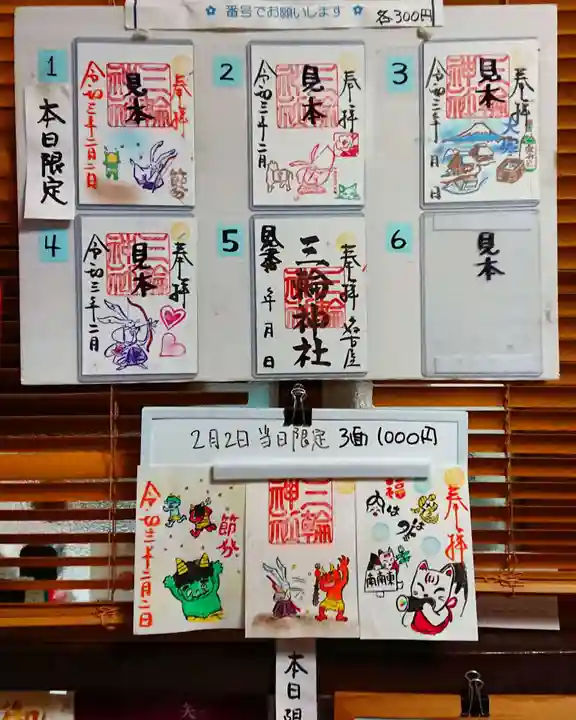 番号でお願いします 各300円
1
奉拝
三輪神社
見本
令和三年二月二日
節分
本日限定
2
奉拝
三輪神社
見本
令和三年二月
3
奉拝
三輪神社
見本
令和三年 月 日
4
奉拝
三輪神社
見本
令和三年二月
5
奉拝 名古屋
三輪神社
見本
年 月 日
6
見本
2月2日 当日限定 3面 1000円
奉拝
福
肉は
南南東
三輪神社
節分
令和三年二月二日
本日限